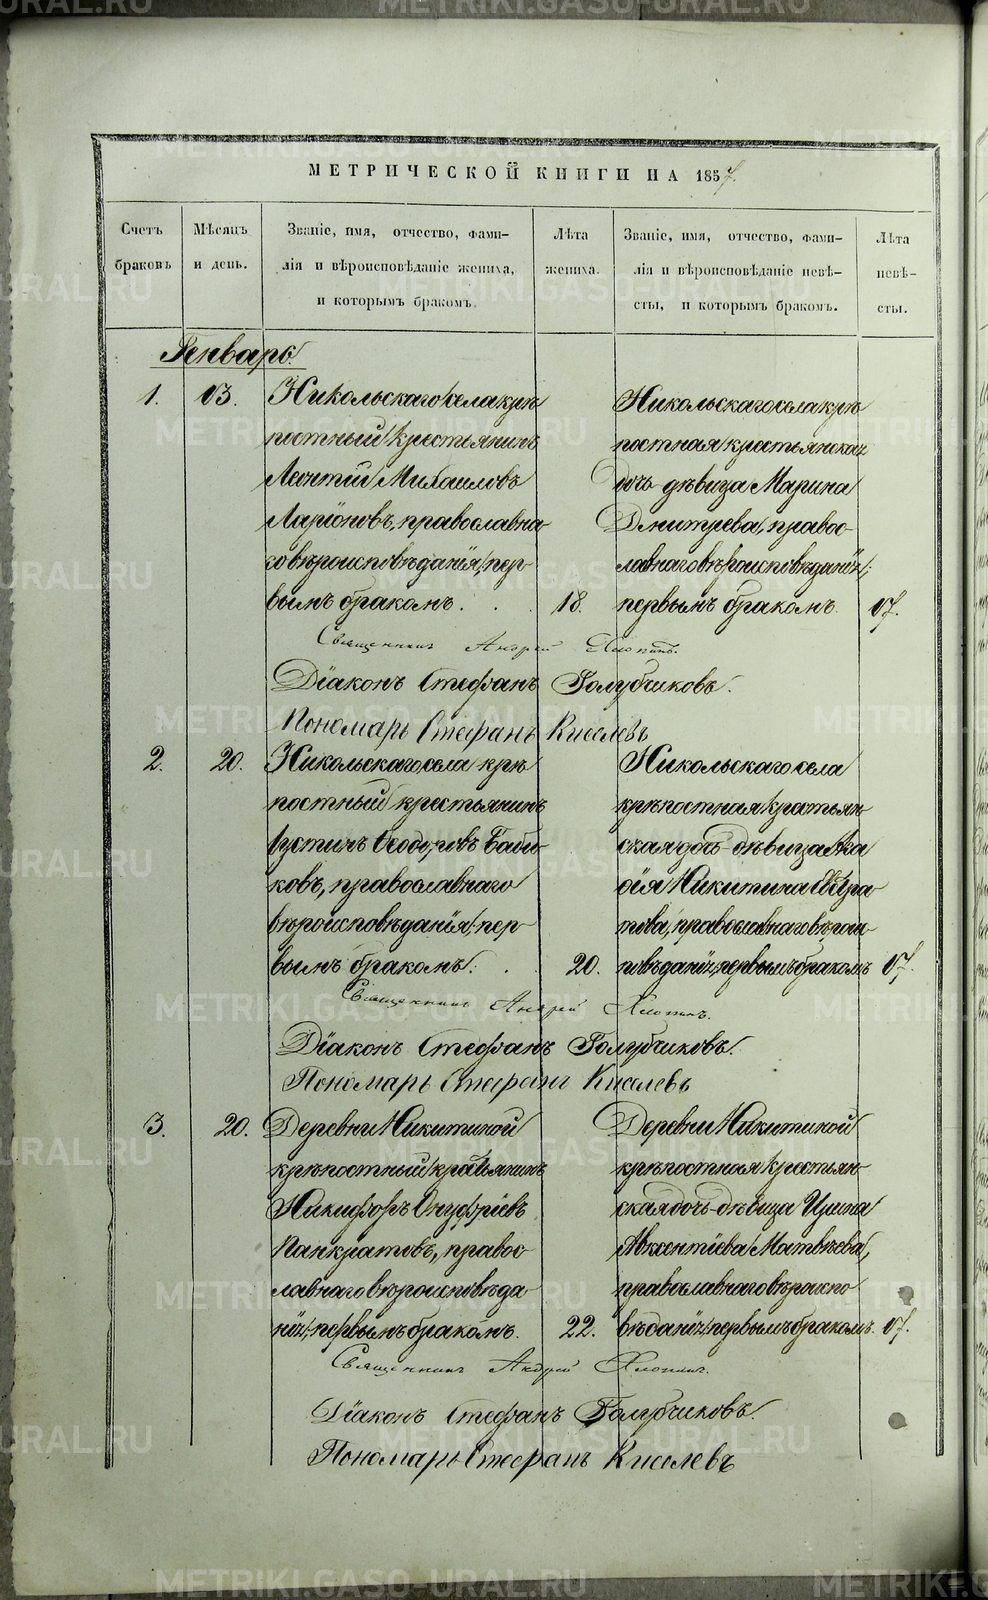 МЕТРИЧЕСКОЙ КНИГИ НА 1857.
Счетъ браковъ
Мѣсяцъ и день.
Званіе, имя, отчество, фами-
лія и вѣроисповѣданіе жениха,
и которымъ бракомъ.
Лѣта жениха.
Званіе, имя, отчество, фами-
лія и вѣроисповѣданіе невѣ-
сты, и которымъ бракомъ.
Лѣта невѣ-
сты.
Генварь
1. 13.
Никольскаго села крѣ
постный крестьянинъ
Леонтій Михаиловъ
Ларіоновъ, православна
го вѣроисповѣданія, пер-
вымъ бракомъ. . . 18.
Никольскаго села крѣ
постная крестьянская
дочь дѣвица Марина
Дмитріева, правос-
лавнаго вѣроисповѣданія,
первымъ бракомъ. 17.
Священникъ Андрей Хлопинъ.
Діаконъ Стефанъ Голубчиковъ.
Пономарь Стефанъ Киселевъ
2. 20.
Никольскаго села крѣ
постный крестьянинъ
Іустинъ Ѳеодоровъ Баби-
ковъ, православнаго
вѣроисповѣданія, пер-
вымъ бракомъ. . 20.
Никольскаго села
крѣпостная крестьян-
ская дочь дѣвица
Никитина
православнаго вѣроис-
повѣданія, первымъ бракомъ 17.
Священникъ Андрей Хлопинъ.
Діаконъ Стефанъ Голубчиковъ.
Пономарь Стефанъ Киселевъ
3. 20.
Деревни Никитиной
крѣпостный крестьянинъ
Никифоръ Онуфріевъ
Панкратовъ, правос-
лавнаго вѣроисповѣда-
нія, первымъ бракомъ. 22.
Деревни Никитиной
крѣпостная крестьян-
ская дочь дѣвица Ирина
Авксентіева Матвѣева,
православнаго вѣроиспо
вѣданія, первымъ бракомъ. 17.
Священникъ Андрей Хлопинъ.
Діаконъ Стефанъ Голубчиковъ.
Пономарь Стефанъ Киселевъ
METRIKI.GASO-URAL.RU